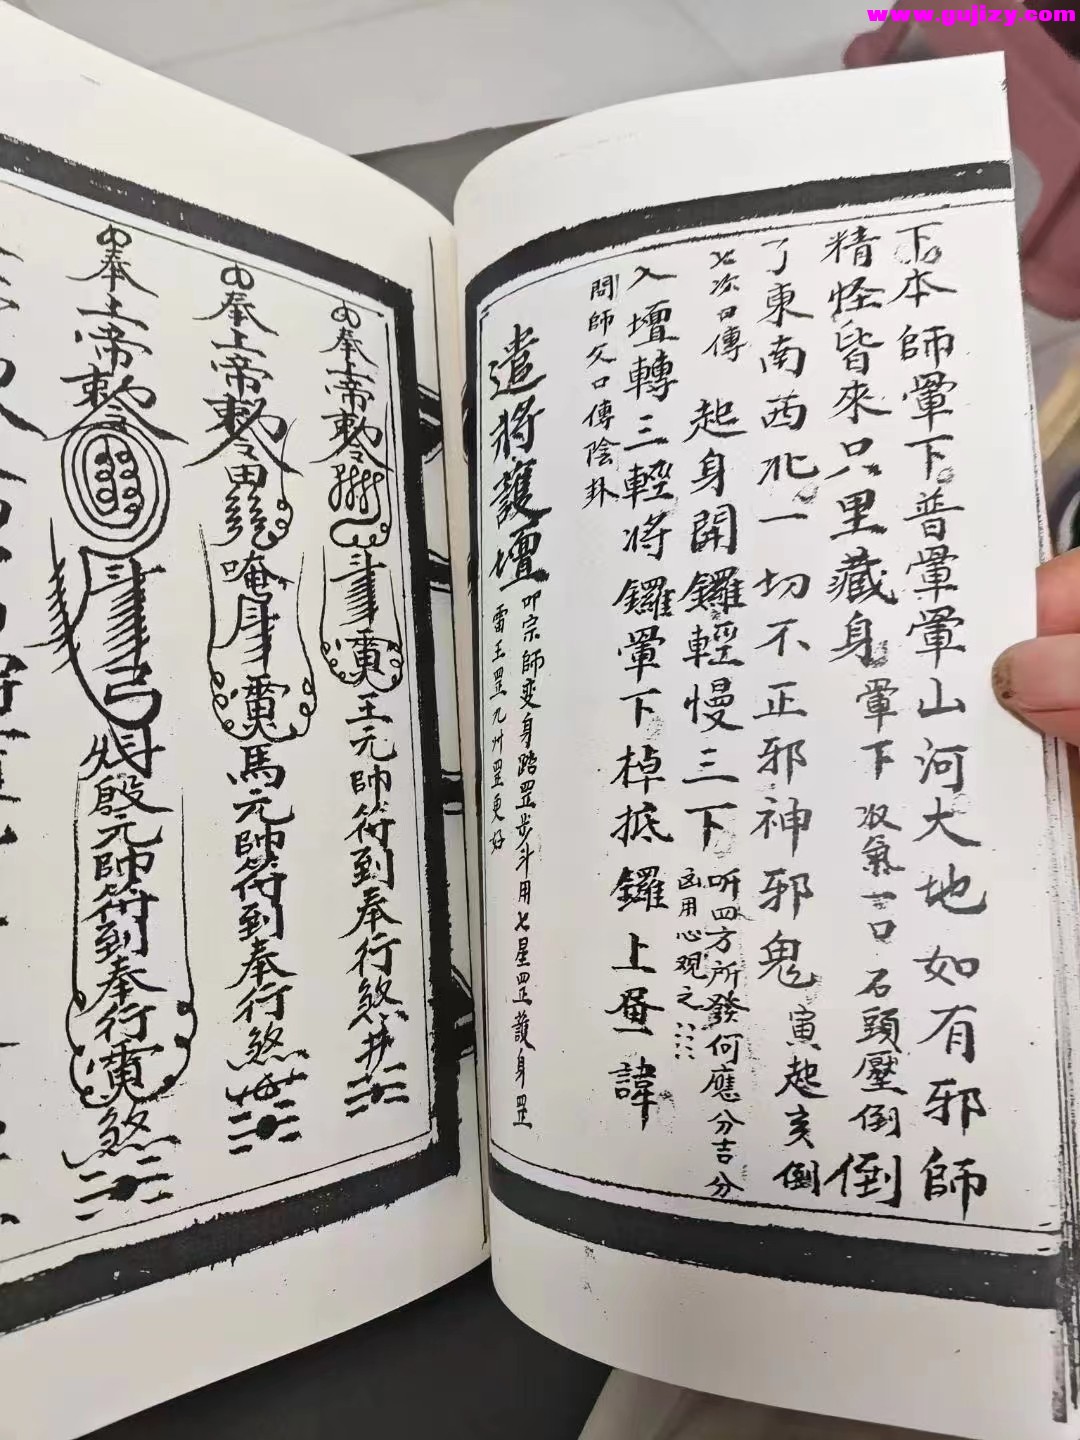 www.gujizy.com
下本師暈下普暈暈山河大地如有邪師
精怪皆來只里藏身暈下収氣一口石頭壓倒倒
了東南西北一切不正邪神邪鬼寅起亥倒
七次口傳起身開鑼輕慢三下听四方所發何應分吉分
凶用心观之
入壇轉三輕將鑼暈下棹抵鑼上諱
問師父口傳陰卦
遣將護壇叩宗師变身踏罡步斗用七星罡護身罡
雷王罡九州罡更好
奉上帝敕令王元帥符到奉行煞
奉上帝敕令唵馬元帥符到奉行煞
奉上帝敕令殷元帥符到奉行煞